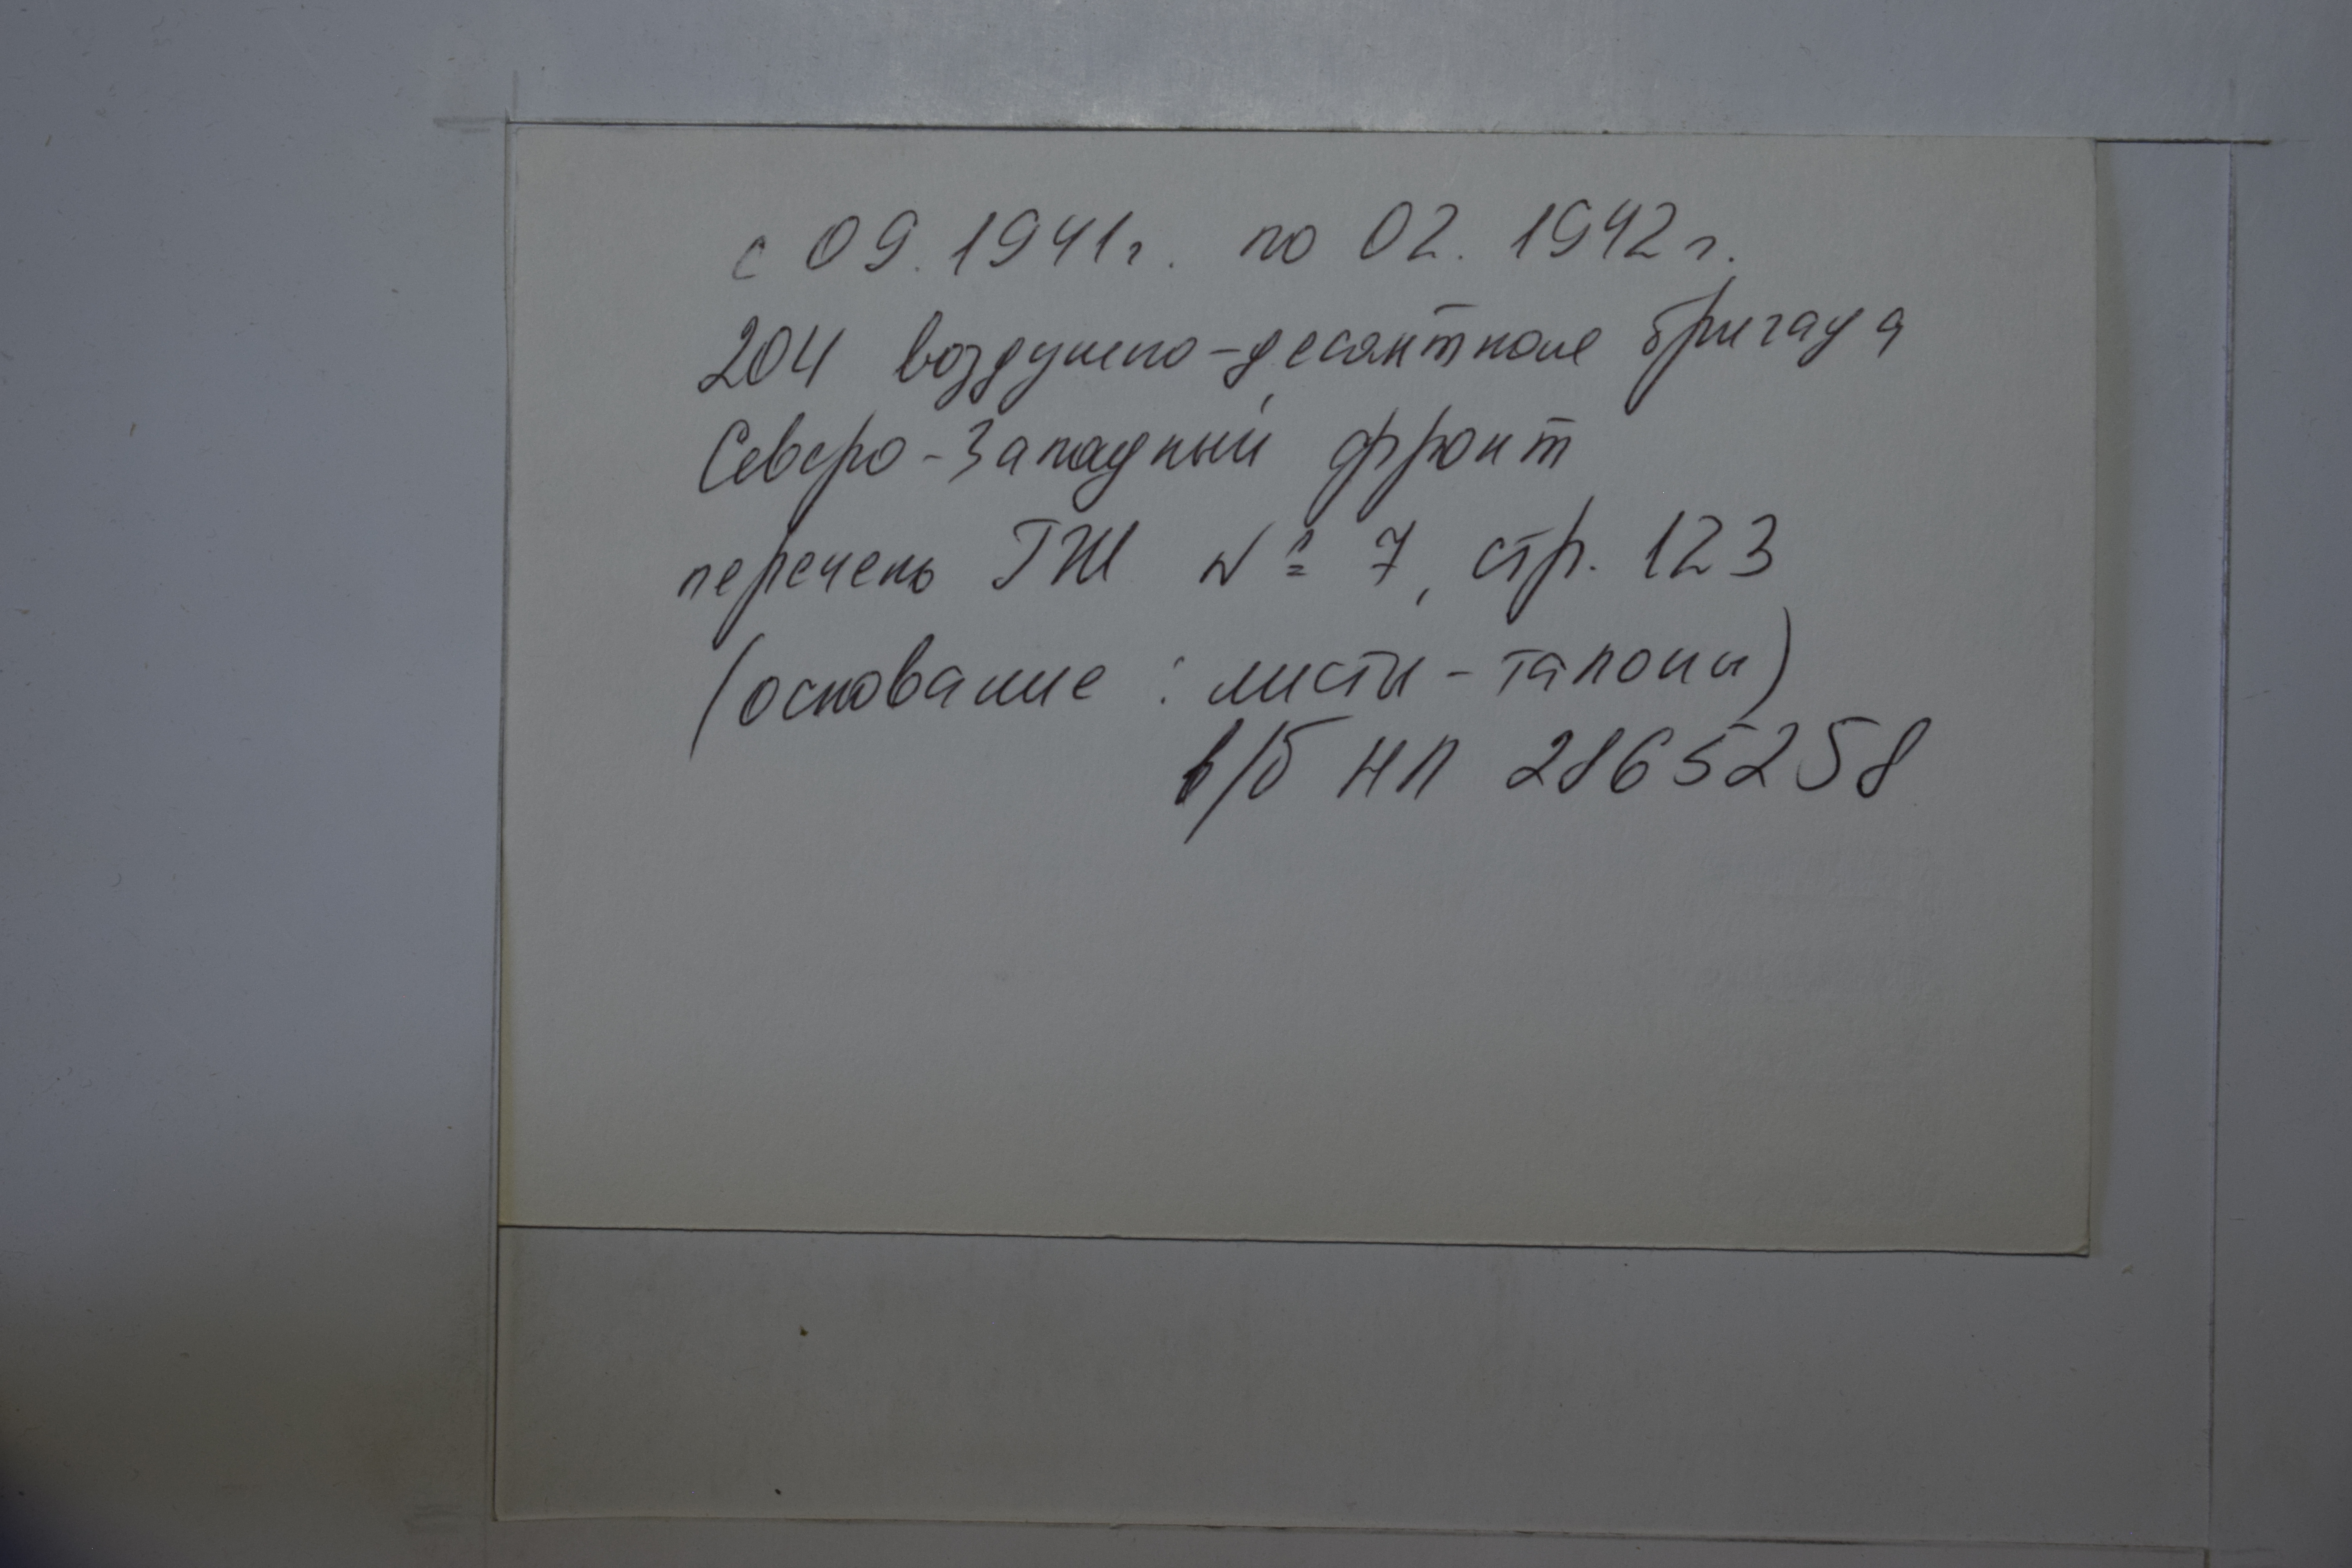 с 09.1941г. по 02.1942г.
204 воздушно-десантная бригада
Северо-Западный фронт
перечень ГШ № 7, стр. 123
(основание: листы-талоны)
в/б НП 2865258